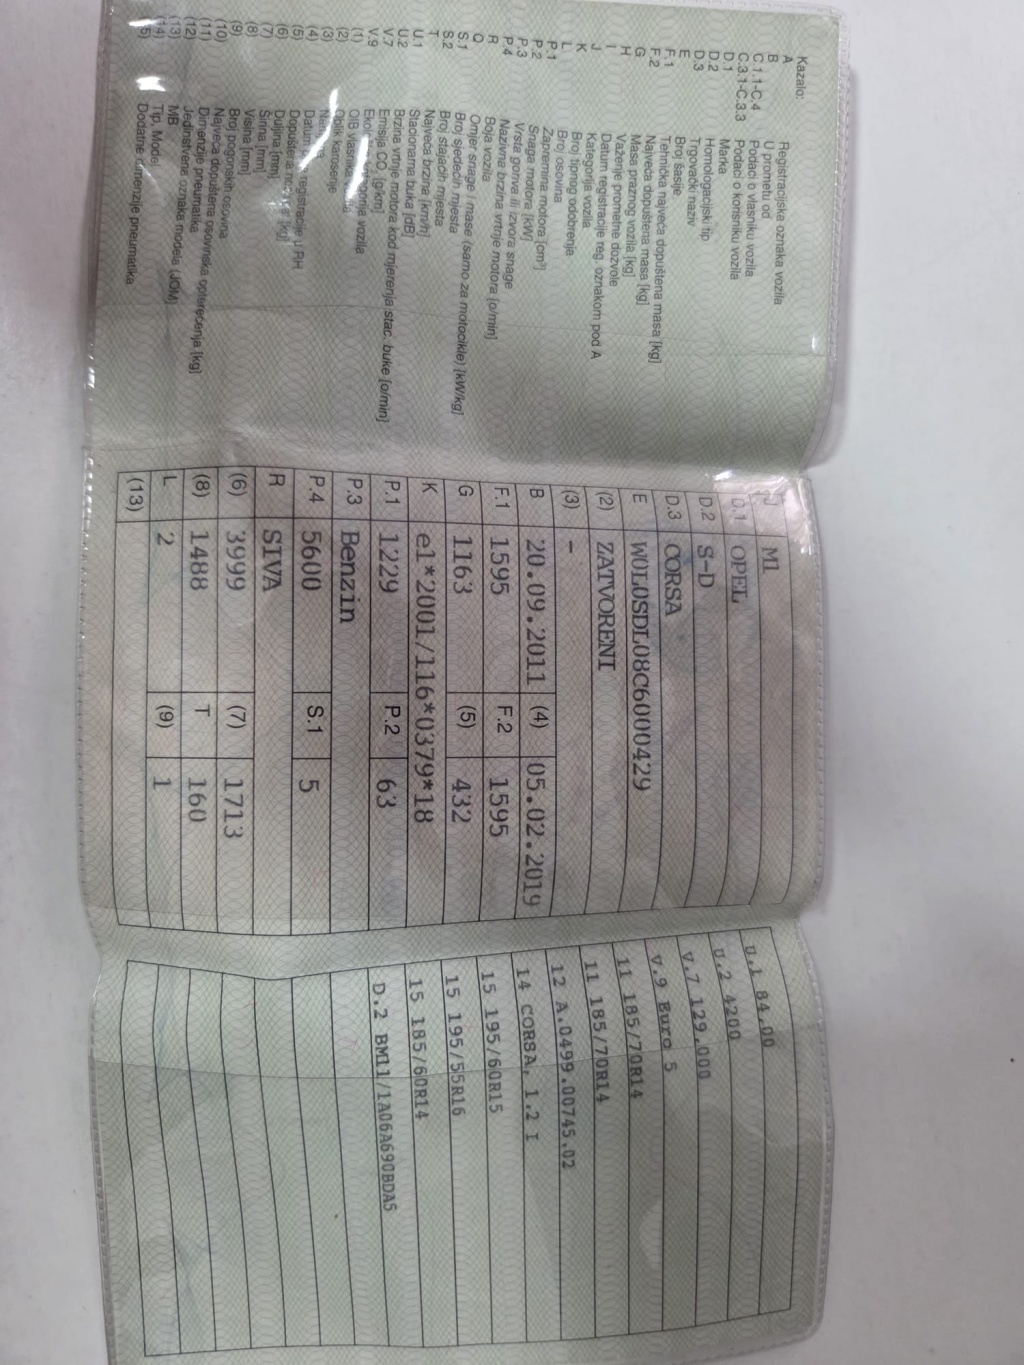 Kazalo:
A Registracijska oznaka vozila
B U prometu od
C.1.1-C.4 Podaci o vlasniku vozila
C.3.1-C.3.3 Podaci o korisniku vozila
D.1 Marka
D.2 Homologacijski tip
D.3 Trgovački naziv
E Broj šasije
F.1 Tehnička najveća dopuštena masa [kg]
F.2 Najveća dopuštena masa [kg]
G Masa praznog vozila [kg]
H Važenje prometne dozvole
I Datum registracije reg. oznakom pod A
J Kategorija vozila
K Broj tipnog odobrenja
L Broj osovina
P.1 Zapremina motora [cm³]
P.2 Snaga motora [kW]
P.3 Vrsta goriva ili izvora snage
P.4 Nazivna brzina vrtnje motora [o/min]
R Boja vozila
Q Omjer snage i mase (samo za motocikle) [kW/kg]
S.1 Broj sjedećih mjesta
S.2 Broj stajaćih mjesta
T Najveća brzina [km/h]
U.1 Stacionarna buka [dB]
U.2 Brzina vrtnje motora kod mjerenja stac. buke [o/min]
V.7 Emisija CO₂ [g/km]
V.9 vozila
(1) OIB
(2) Oblik karoserije
(3)
(4) registracije u RH
(5) Dopuštena [kg]
(6) Duljina [mm]
(7) Širina [mm]
(8) Visina [mm]
(9) Broj pogonskih osovina
(10) Najveća dopuštena osovinska opterećenja [kg]
(11) Dimenzije pneumatika
(12) Jedinstvena oznaka modela (JOM)
(13) MB
(14) Tip, Model
(15) Dodatne dimenzije pneumatika
J M1
D.1 OPEL
D.2 S-D
D.3 CORSA
E W0L0SDL08C6000429
(2) ZATVORENI
(3) -
B 20.09.2011 (4) 05.02.2019
F.1 1595 F.2 1595
G 1163 (5) 432
K e1*2001/116*0379*18
P.1 1229 P.2 63
P.3 Benzin
P.4 5600 S.1 5
R SIVA
(6) 3999 (7) 1713
(8) 1488 T 160
L 2 (9) 1
(13)
U.1 84.00
U.2 4200
V.7 129.000
V.9 Euro 5
11 185/70R14
11 185/70R14
12 A.0499.00745.02
14 CORSA, 1.2 I
15 195/60R15
15 195/55R16
15 185/60R14
D.2 BM11/1A06A690BDA5